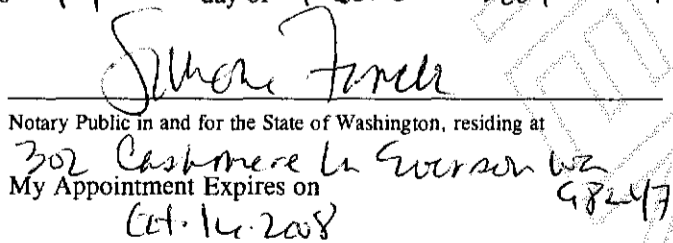 day of
Simone
Notary Public in and for the State of Washington, residing at
302 Cashmere Ln Everson Wa
98247
My Appointment Expires on
Oct. 2008